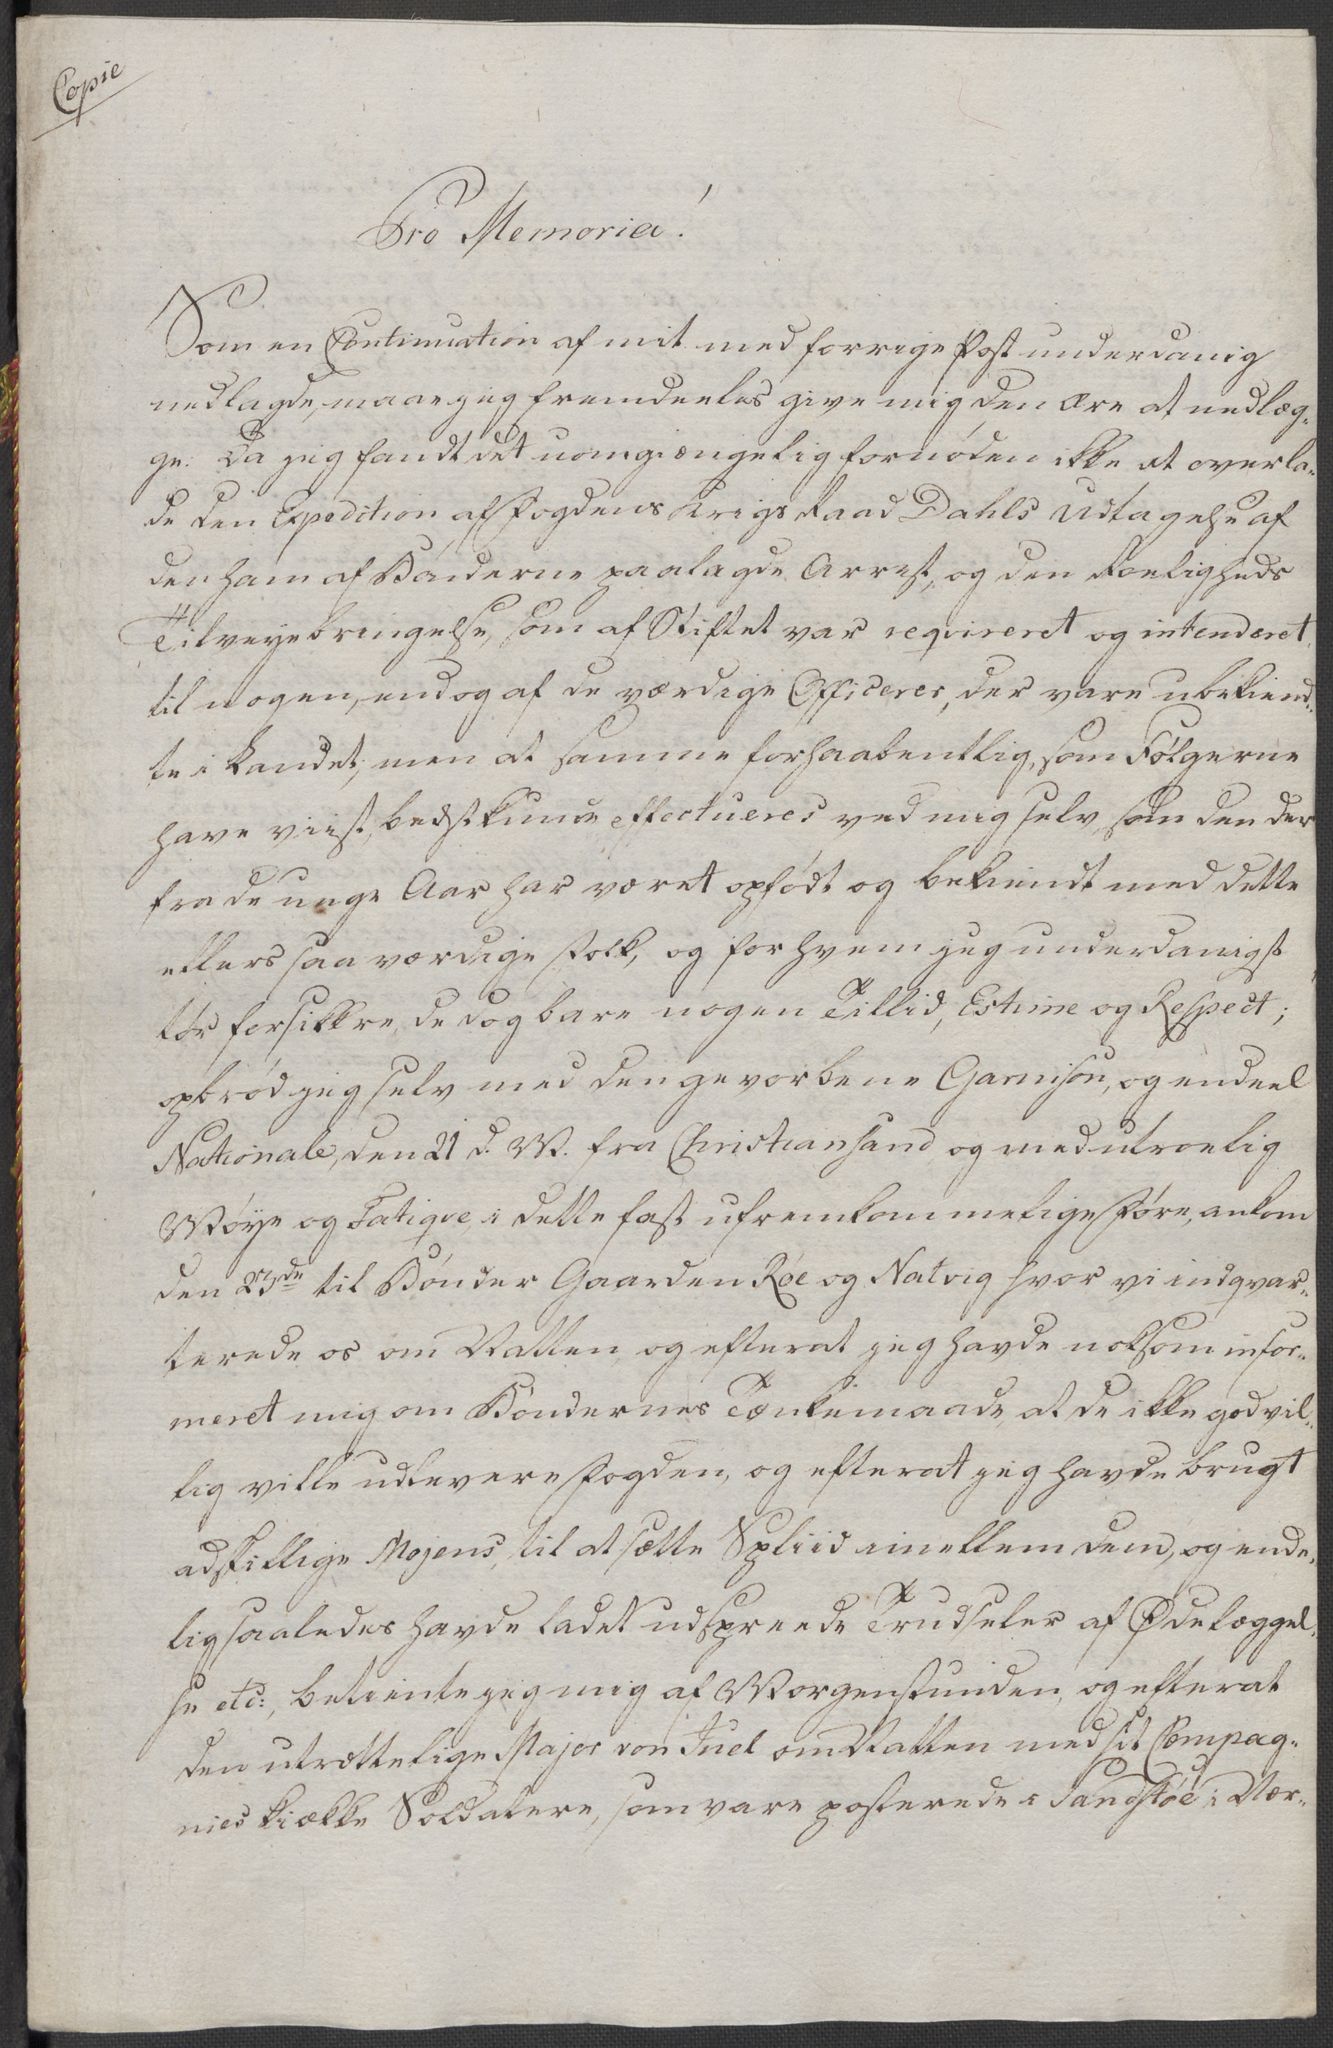 Copie
Pro Memoria!
Som en Continuation af mit med forrige Post underdanig
nedlagde, maae jeg fremdeeles give mig den Ære at nedlæg-
ge: Da jeg fandt det uomgiængelig fornøden ikke at overla-
de den Expedition af Fogdens Krigs Raad Dahls Udtagelse af
den ham af Bønderne paalagde Arrest, og den Roeligheds
Tilveyebringelse, som af Stiftet var reqvireret og intenderet,
til nogen, endog af de værdige Officerer, der vare ubekiend-
te i Landet, men at samme forhaabentlig, som Følgerne
have viist, bedst kunde effectueres ved mig selv, som den der
fra de unge Aar har været opfødt og bekiendt med dette
ellers saa værdige Folk, og for hvem jeg underdanigst
tør forsikkre, de dog bare nogen Tillid, Estime og Respect;
opbrød jeg selv med den gevorbene Garnison, og endeel
Nationale, den 21 d: M. fra Christiansand og med utroelig
Møye og Fatiqve, i dette fast ufremkommelige Føre, ankom
den 23de til Bønder Gaarden Røe og Natvig hvor vi indqvar-
terede os om Natten, og efterat jeg havde noksom infor-
meret mig om Bøndernes Tænkemaade, at de ikke godvil-
lig ville udlevere Fogden, og efterat jeg havde brugt
adskillige Mojens, til at sætte Spliid imellem dem, og ende-
lig saaledes havde ladet udspreede Trudseler af Ødelæggel-
se etc:, betiente jeg mig af Morgenstunden, og efterat
den utrættelige Major von Juel om Natten med sit Compag-
nies kiække Soldatere, som vare posterede i Sandstøe i Nær-